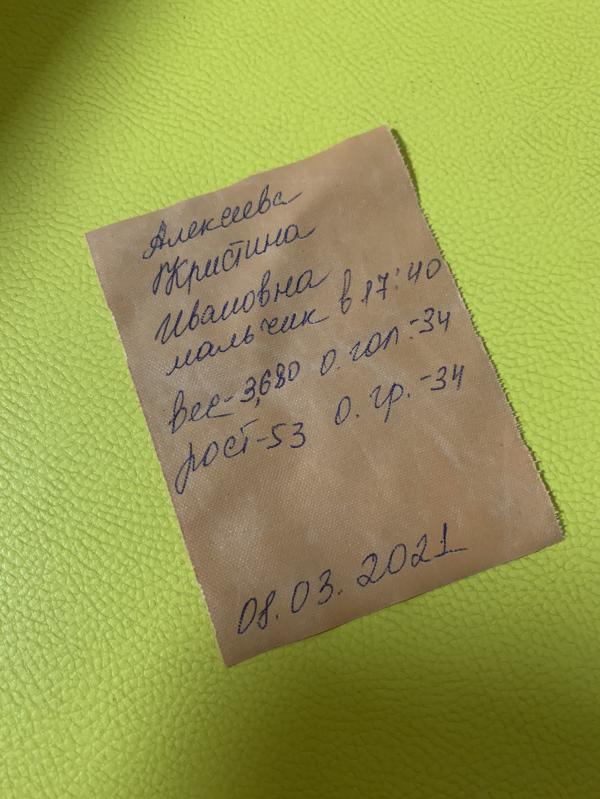 Алексеева
Кристина
Ивановна
мальчик в 17:40
вес-3,680 о. гол.-34
рост-53 о. гр.-34
08.03.2021